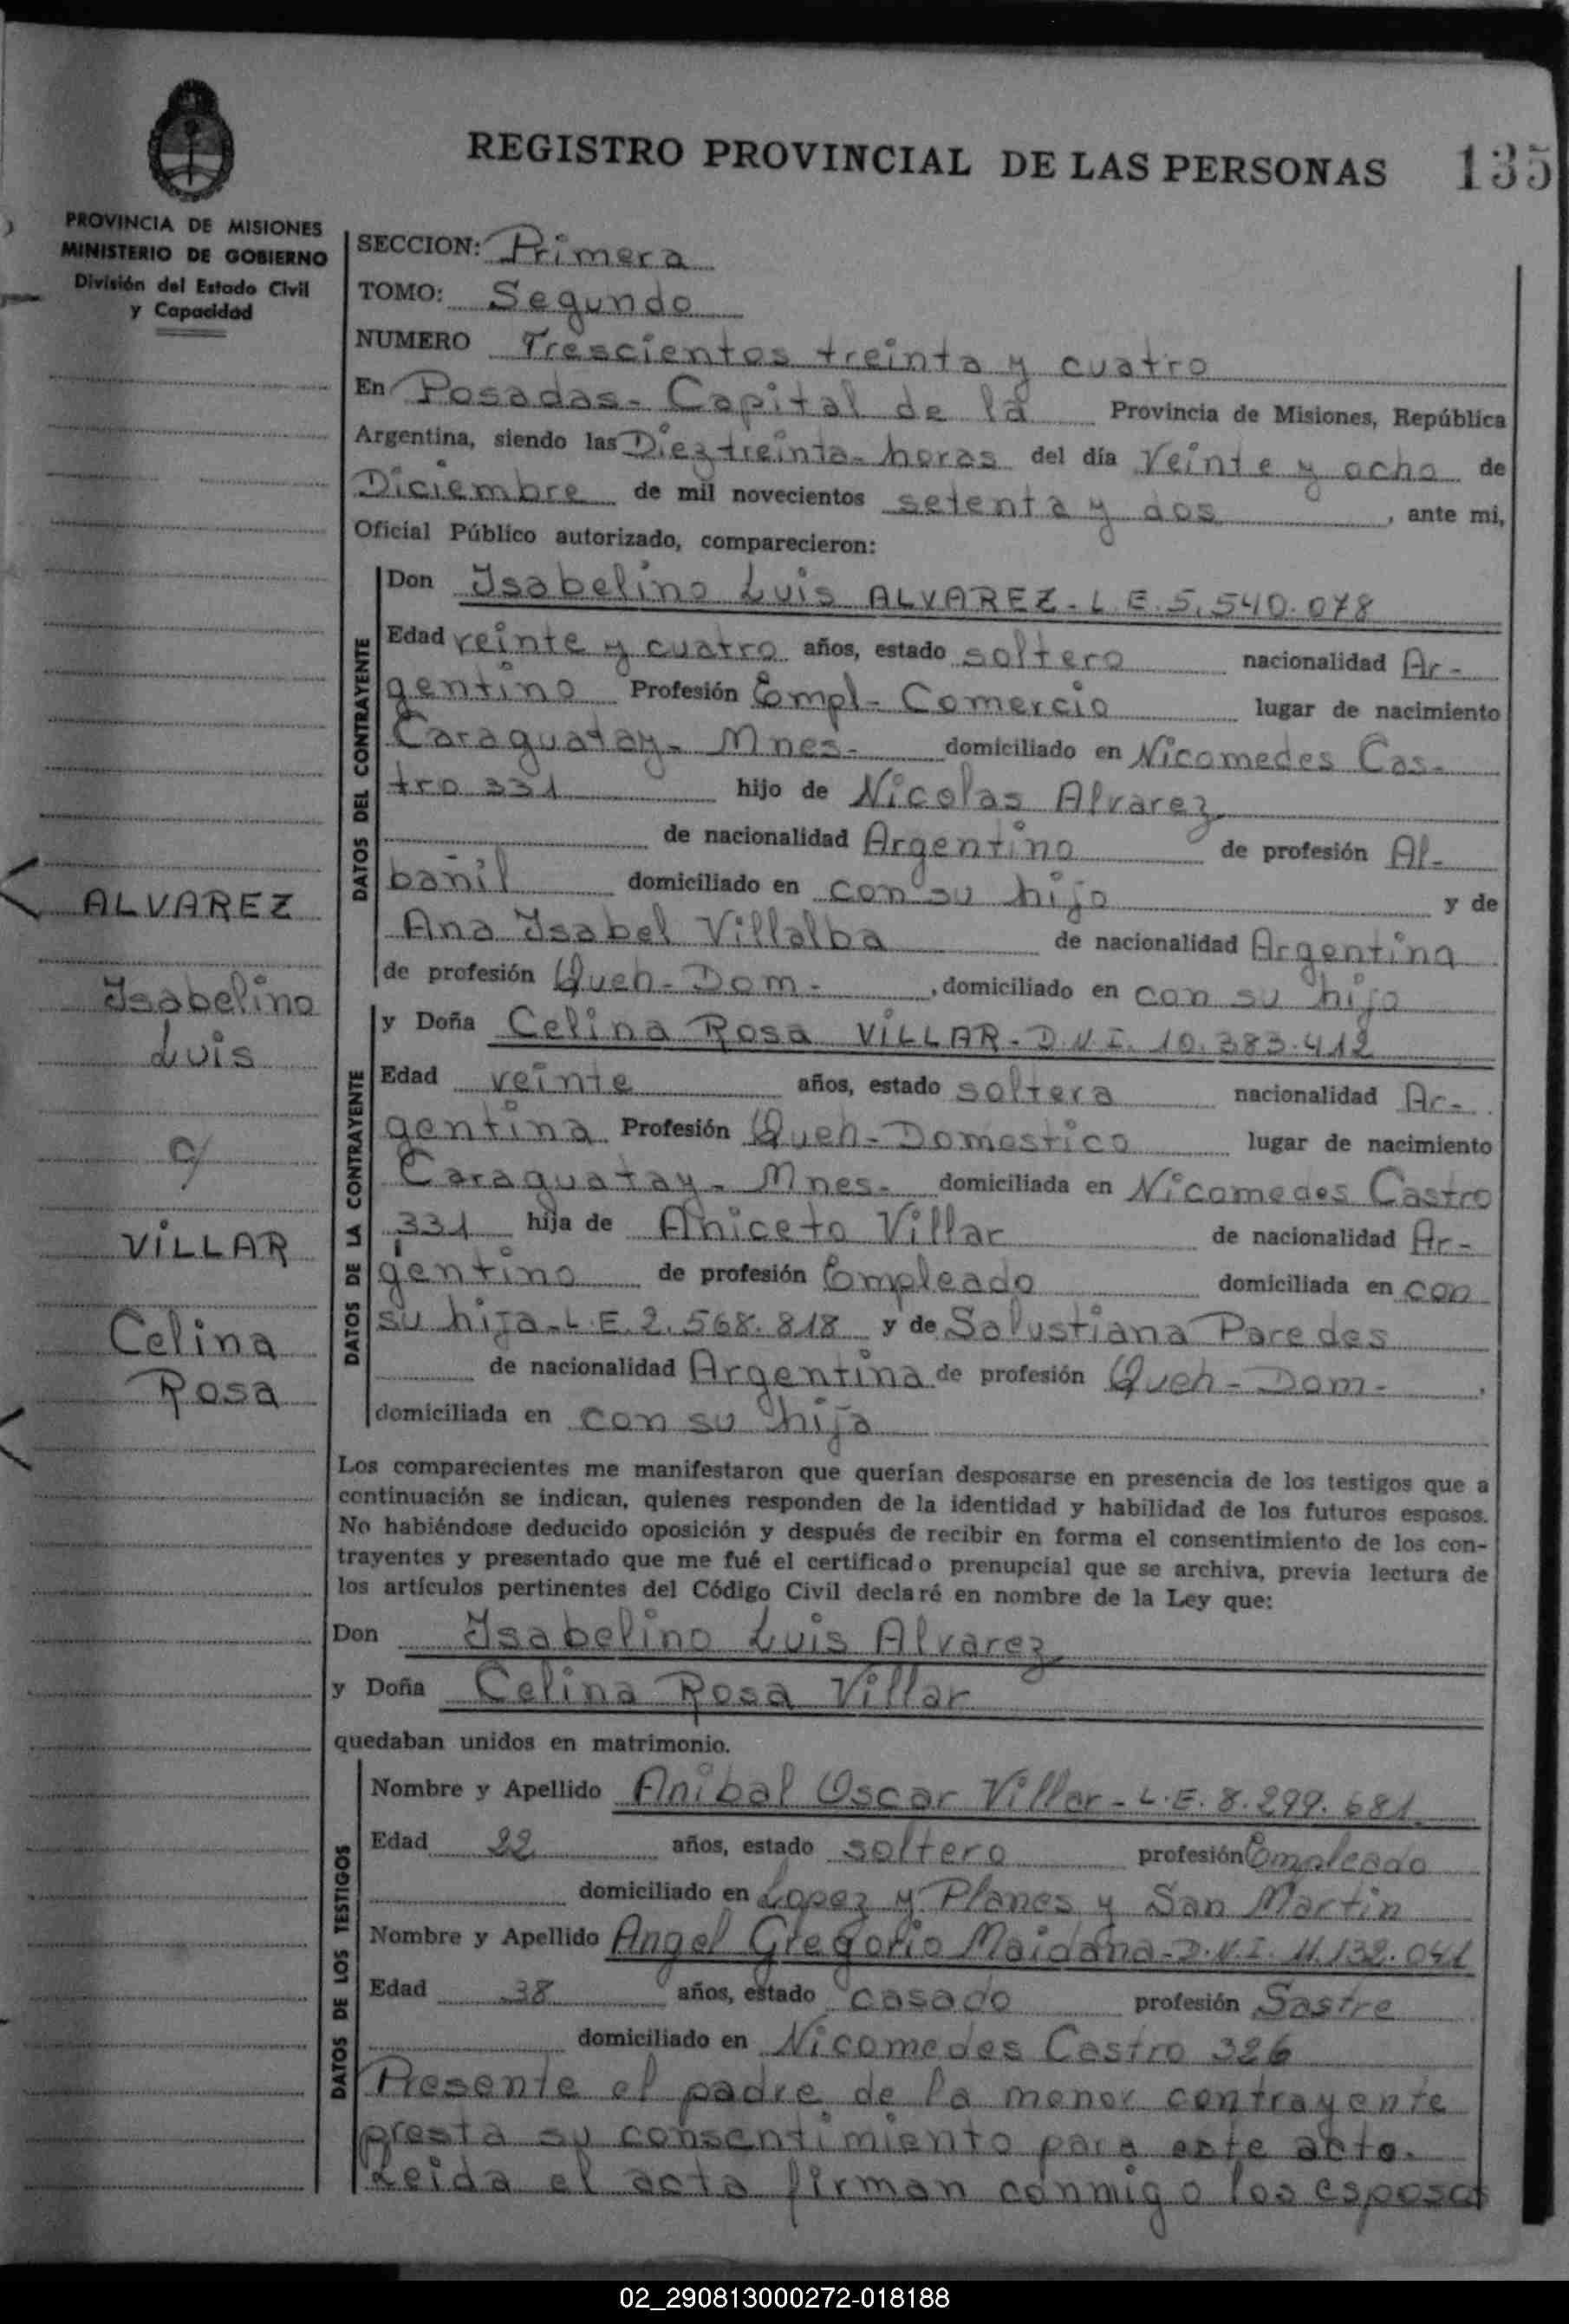 REGISTRO PROVINCIAL DE LAS PERSONAS 135
PROVINCIA DE MISIONES
MINISTERIO DE GOBIERNO
División del Estado Civil
y Capacidad
ALVAREZ
Isabelino
Luis
c/
VILLAR
Celina
Rosa
SECCION: Primera
TOMO: Segundo
NUMERO Trescientos treinta y cuatro
En Posadas - Capital de la Provincia de Misiones, República
Argentina, siendo las Diez treinta - horas del día Veinte y ocho de
Diciembre de mil novecientos setenta y dos, ante mi,
Oficial Público autorizado, comparecieron:
DATOS DEL CONTRAYENTE
Don Isabelino Luis ALVAREZ - L.E. 5.540.078
Edad veinte y cuatro años, estado soltero nacionalidad Ar-
gentino Profesión Empl - Comercio lugar de nacimiento
Caraguatay - Mnes - domiciliado en Nicomedes Cas-
tro 331 hijo de Nicolas Alvarez
de nacionalidad Argentino de profesión Al-
bañil domiciliado en con su hijo y de
Ana Isabel Villalba de nacionalidad Argentina
de profesión Queh - Dom -, domiciliado en con su hijo
DATOS DE LA CONTRAYENTE
y Doña Celina Rosa VILLAR - D.N.I. 10.383.412
Edad veinte años, estado soltera nacionalidad Ar-
gentina Profesión Queh - Domestico lugar de nacimiento
Caraguatay - Mnes - domiciliada en Nicomedes Castro
331 hija de Aniceto Villar de nacionalidad Ar-
gentino de profesión Empleado domiciliada en con
su hija - L.E. 2.568.818 y de Salustiana Paredes
de nacionalidad Argentina de profesión Queh - Dom -,
domiciliada en con su hija
Los comparecientes me manifestaron que querían desposarse en presencia de los testigos que a
continuación se indican, quienes responden de la identidad y habilidad de los futuros esposos.
No habiéndose deducido oposición y después de recibir en forma el consentimiento de los con-
trayentes y presentado que me fué el certificado prenupcial que se archiva, previa lectura de
los artículos pertinentes del Código Civil declaré en nombre de la Ley que:
Don Isabelino Luis Alvarez
y Doña Celina Rosa Villar
quedaban unidos en matrimonio.
DATOS DE LOS TESTIGOS
Nombre y Apellido Anibal Oscar Villar - L.E. 8.299.681
Edad 22 años, estado soltero profesión Empleado
domiciliado en Lopez y Planes y San Martin
Nombre y Apellido Angel Gregorio Maidana - D.N.I. 11.132.041
Edad 38 años, estado casado profesión Sastre
domiciliado en Nicomedes Castro 326
Presente el padre de la menor contrayente
presta su consentimiento para este acto.
Leida el acta firman conmigo los esposos
02_290813000272-018188